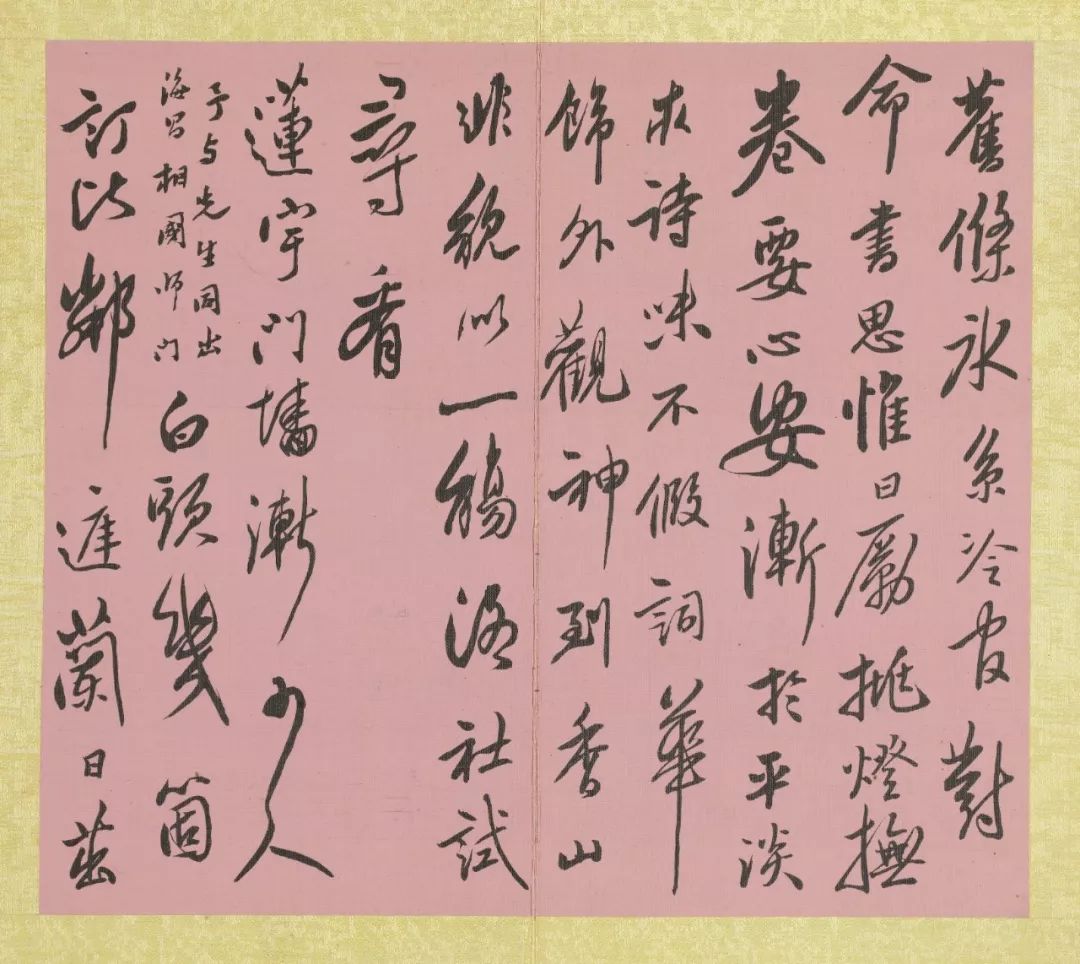 舊條氷系冷官對
命書思惟日勵挑燈撫
卷要心安漸於平淡
求詩味不假詞華
飾外觀神到香山
非貌似一觴洛社試
尋看
蓮宇門墻漸少人
予与先生同出
海昌相國師門
白頭幾箇
訂比鄰庭蘭日茁